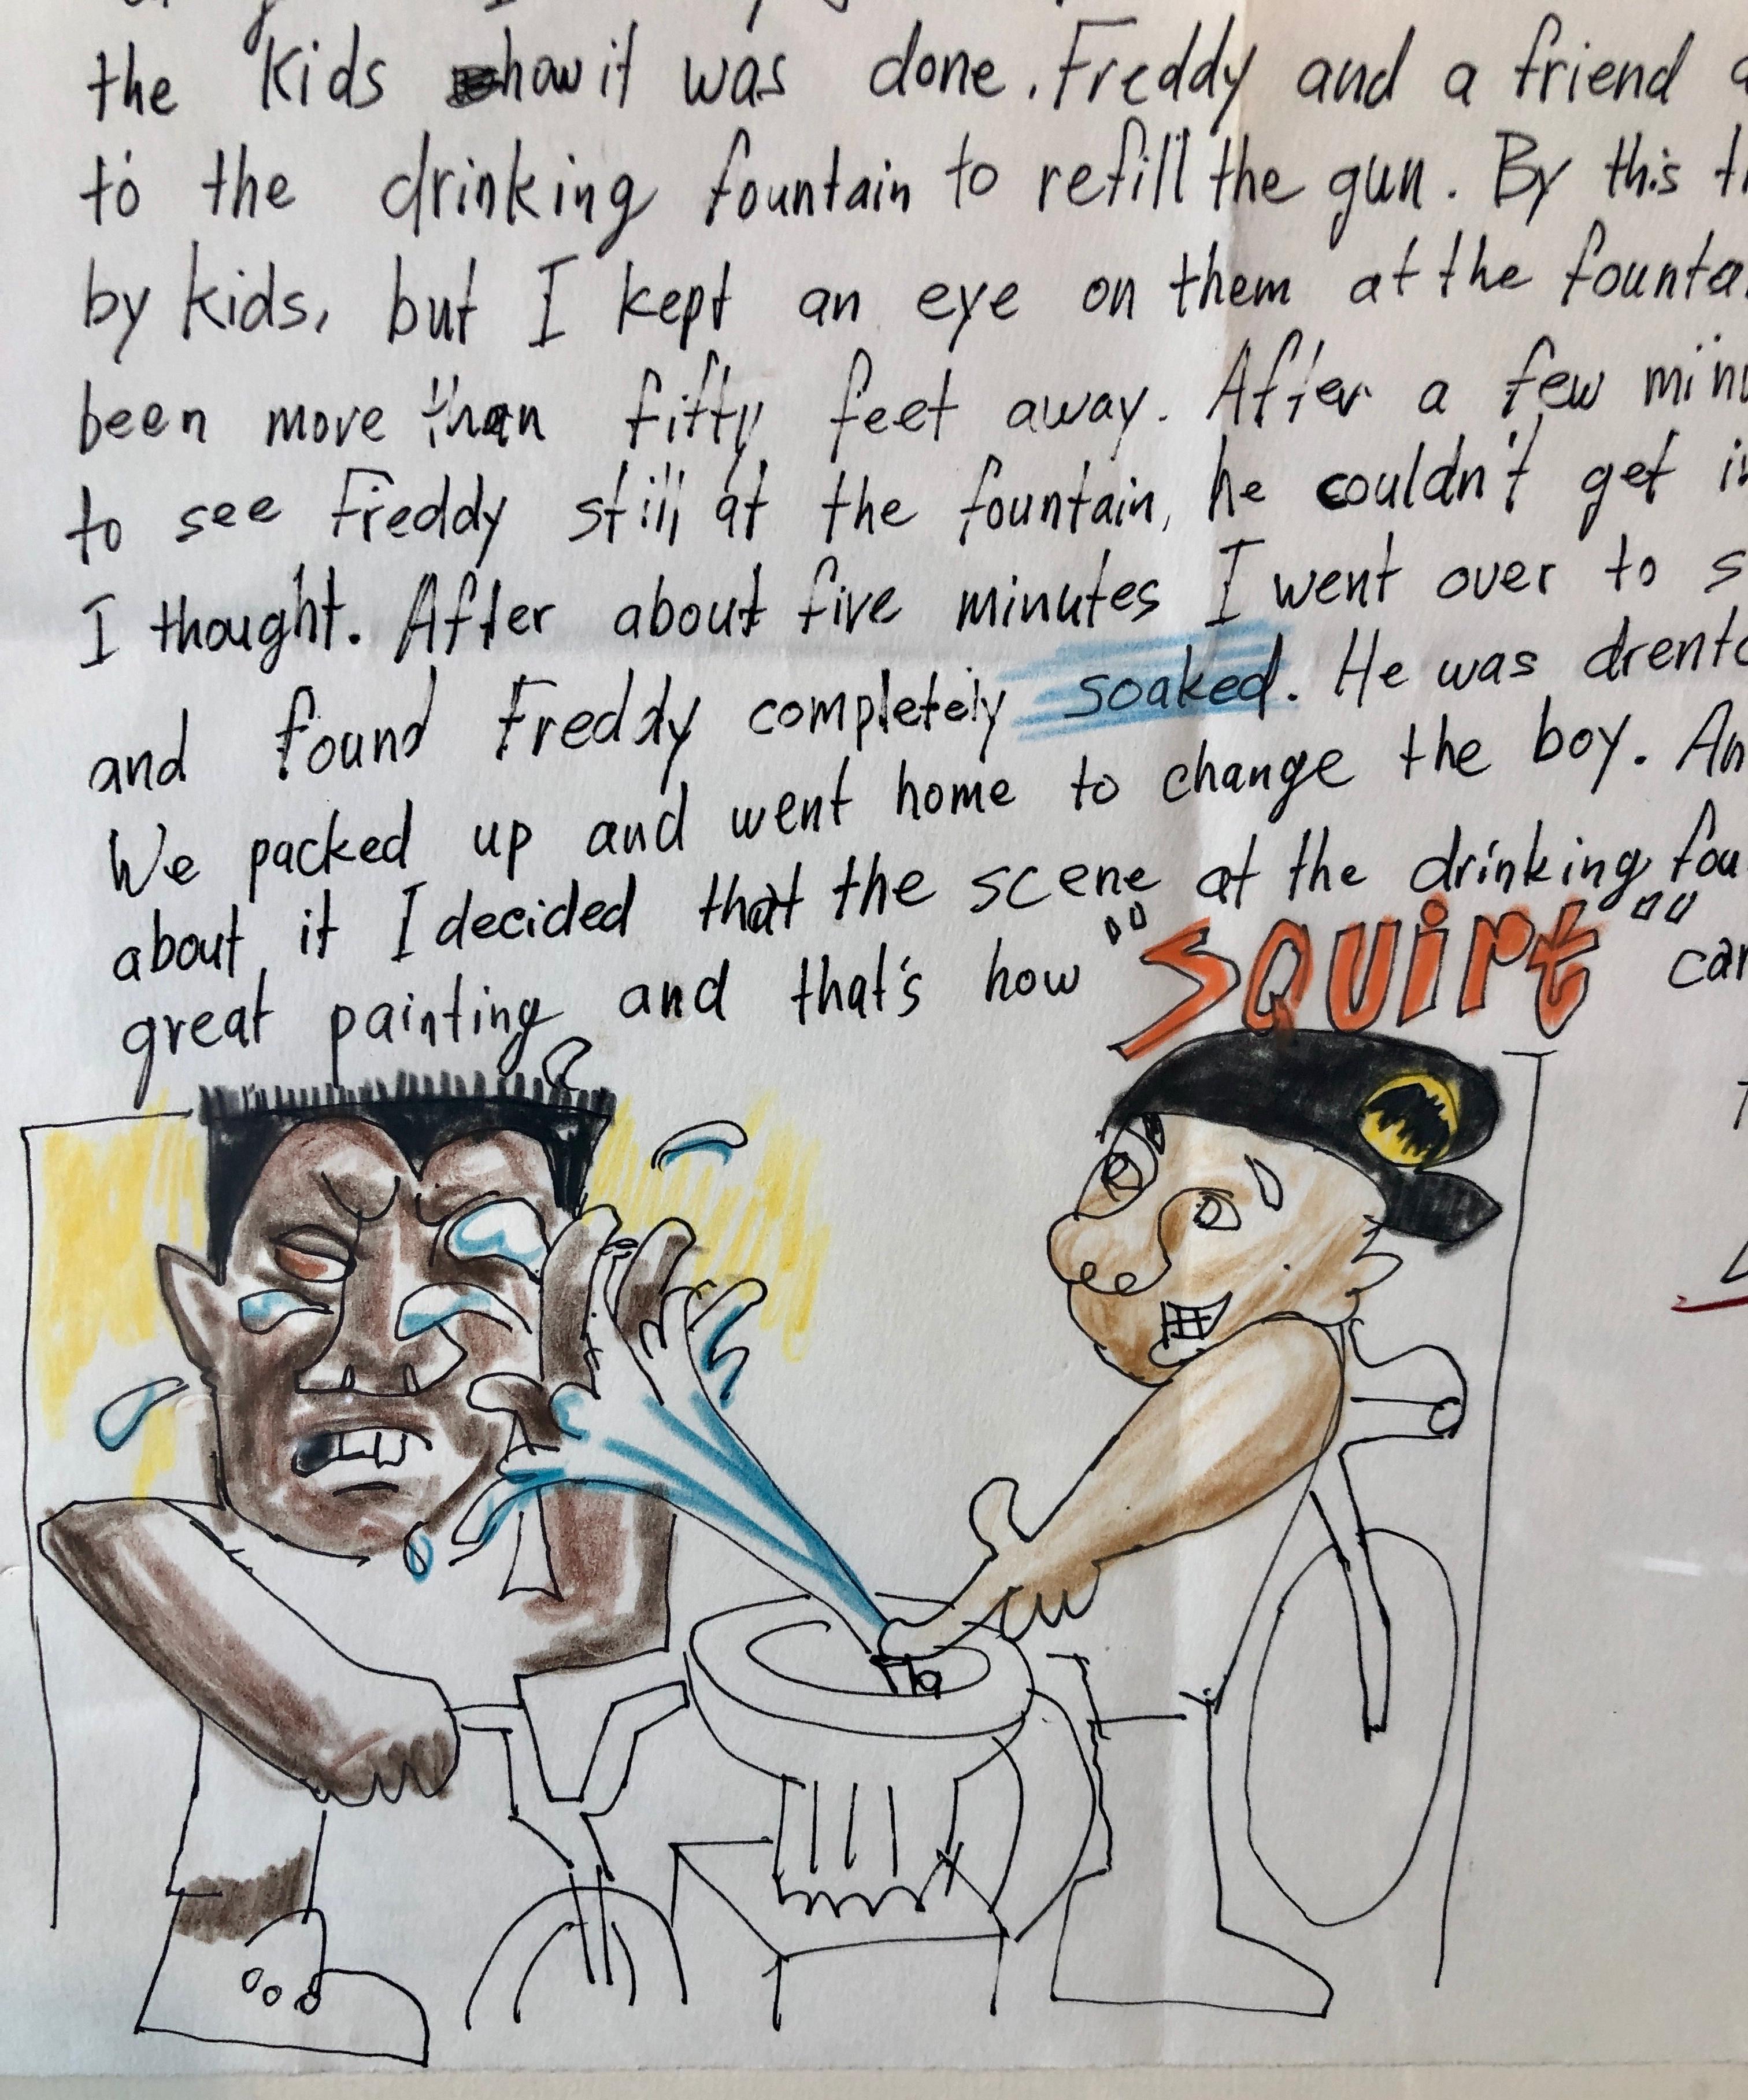 the kids how it was done. Freddy and a friend
to the drinking fountain to refill the gun. By this
by kids, but I kept an eye on them at the founta
been more than fifty feet away. After a few minu
to see Freddy still at the fountain, he couldn't get
I thought. After about five minutes I went over to s
and found Freddy completely soaked. He was drentc
We packed up and went home to change the boy. An
about it I decided that the scene at the drinking fou
great painting and that's how "SQUIRT" car